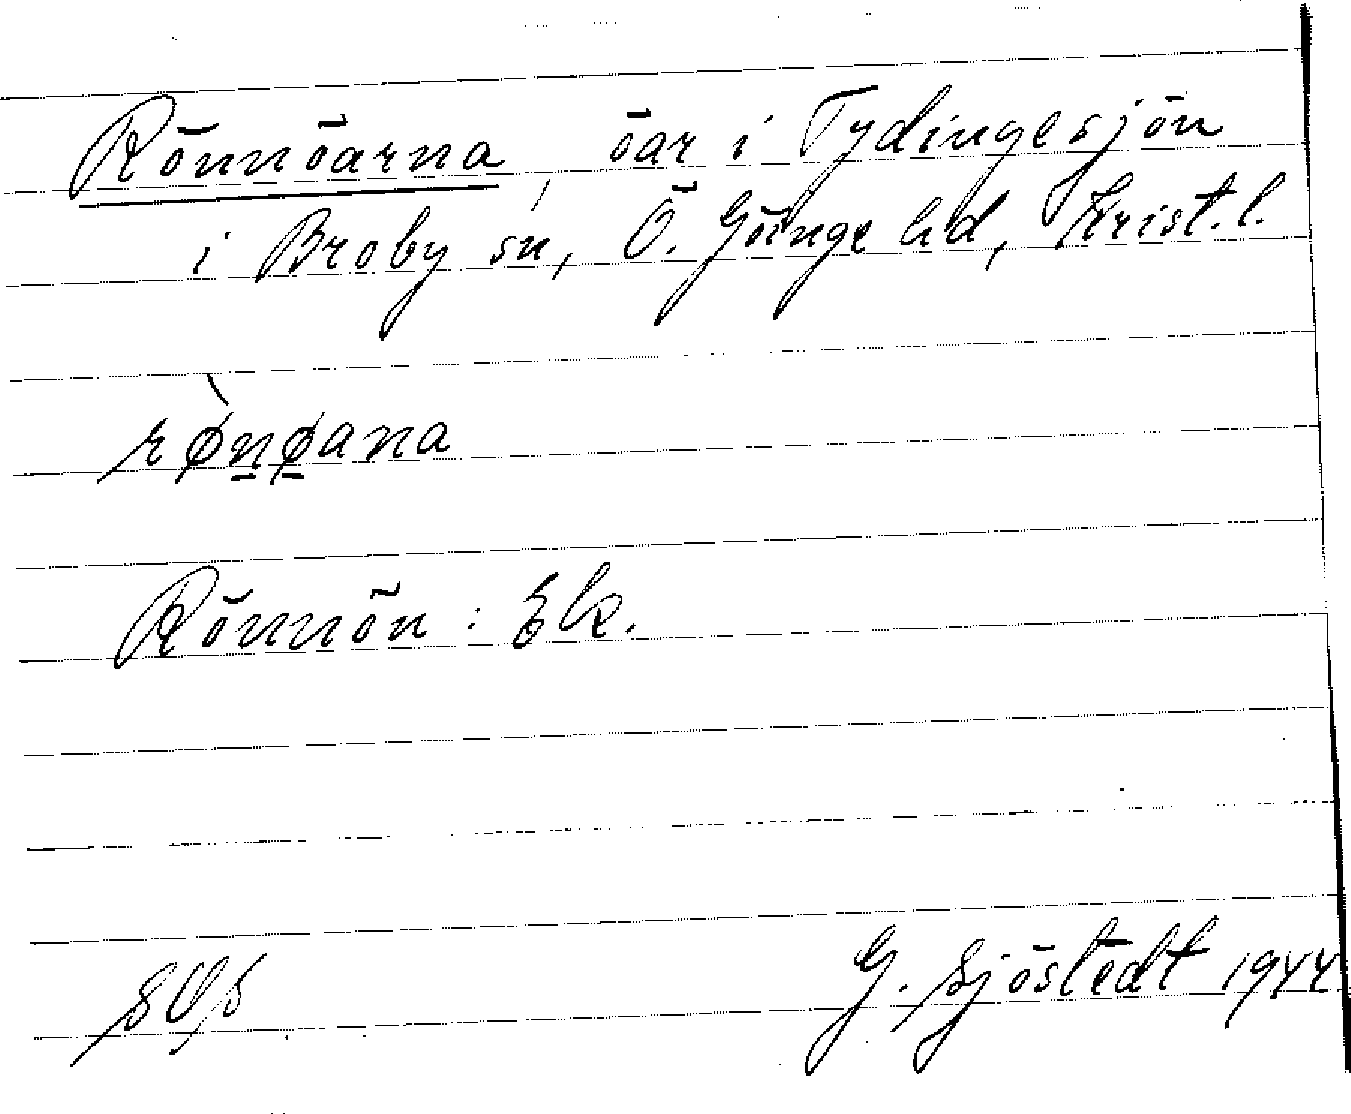 Rönnöarna, öar i Tydingesjön
i Broby sn, Ö. Göinge hd, Krist.l.
rø̀nøana
Rönnön: Ek.
G. Sjöstedt 1944